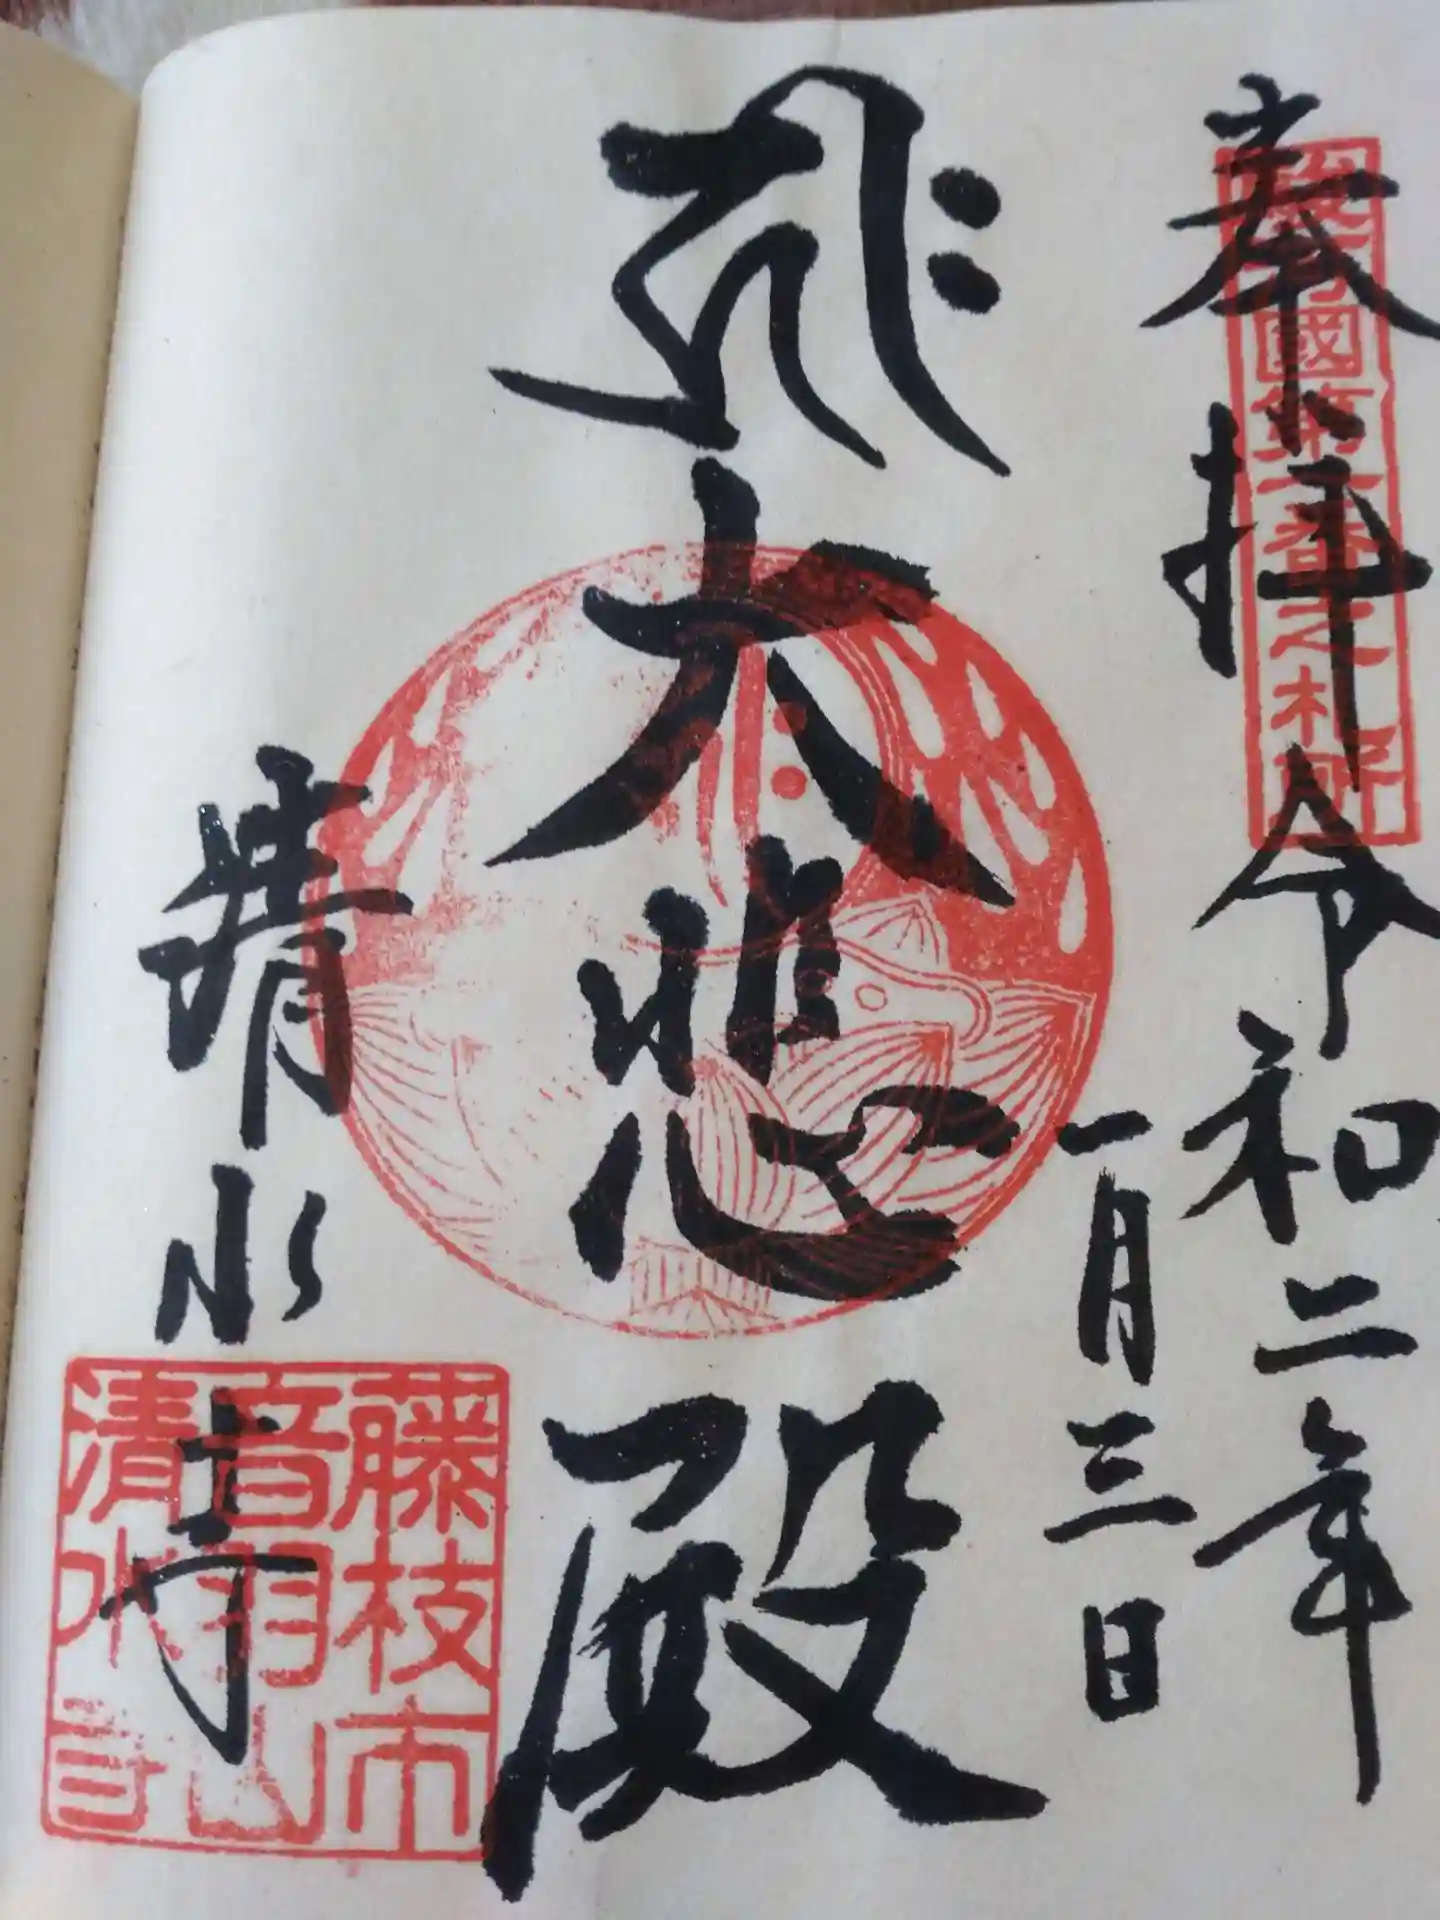 駿河國第一番之札所
奉拝 令和二年
一月三日
𑖮𑖿𑖨𑖱𑖾 大悲殿
清水寺
藤枝市
音羽山
清水寺